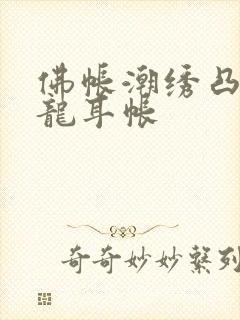 佛帐潮绣凸
龍耳帐
奇奇妙妙繫列